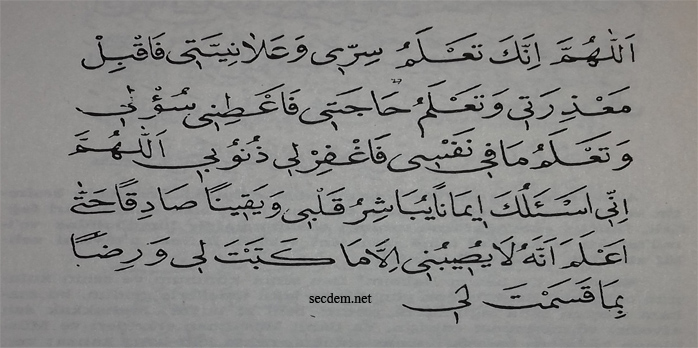 اَللّٰهُمَّ اِنَّكَ تَعْلَمُ سِرِّى وَعَلَانِيَتِى فَاقْبِلْ
مَعْذِرَتِى وَتَعْلَمُ حَاجَتِى فَاَعْطِنِى سُؤْلِى
وَتَعْلَمُ مَا فِى نَفْسِى فَاغْفِرْ لِى ذُنُوبِى اَللّٰهُمَّ
اِنِّى اَسْئَلُكَ اِيمَانًا يُبَاشِرُ قَلْبِى وَيَقِينًا صَادِقًا حَتّٰى
اَعْلَمَ اَنَّهُ لَا يُصِيبُنِى اِلَّا مَا كَتَبْتَ لِى وَرِضًا
بِمَا قَسَمْتَ لِى
secdem.net